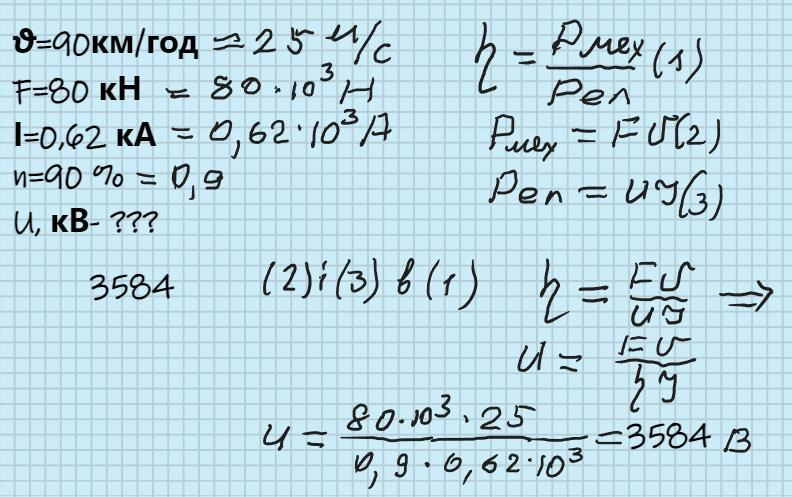 ϑ=90км/год = 25 м/с
F=80 кН = 80·10³ Н
I=0,62 кА = 0,62·10³ А
η=90 % = 0,9
U, кВ- ???
η = Рмех/Рел (1)
Рмех = Fυ(2)
Рел = UI(3)
3584
(2) і (3) в (1) η = Fυ/UI ⇒
U = Fυ/ηI
U = 80·10³·25/0,9·0,62·10³ = 3584 В